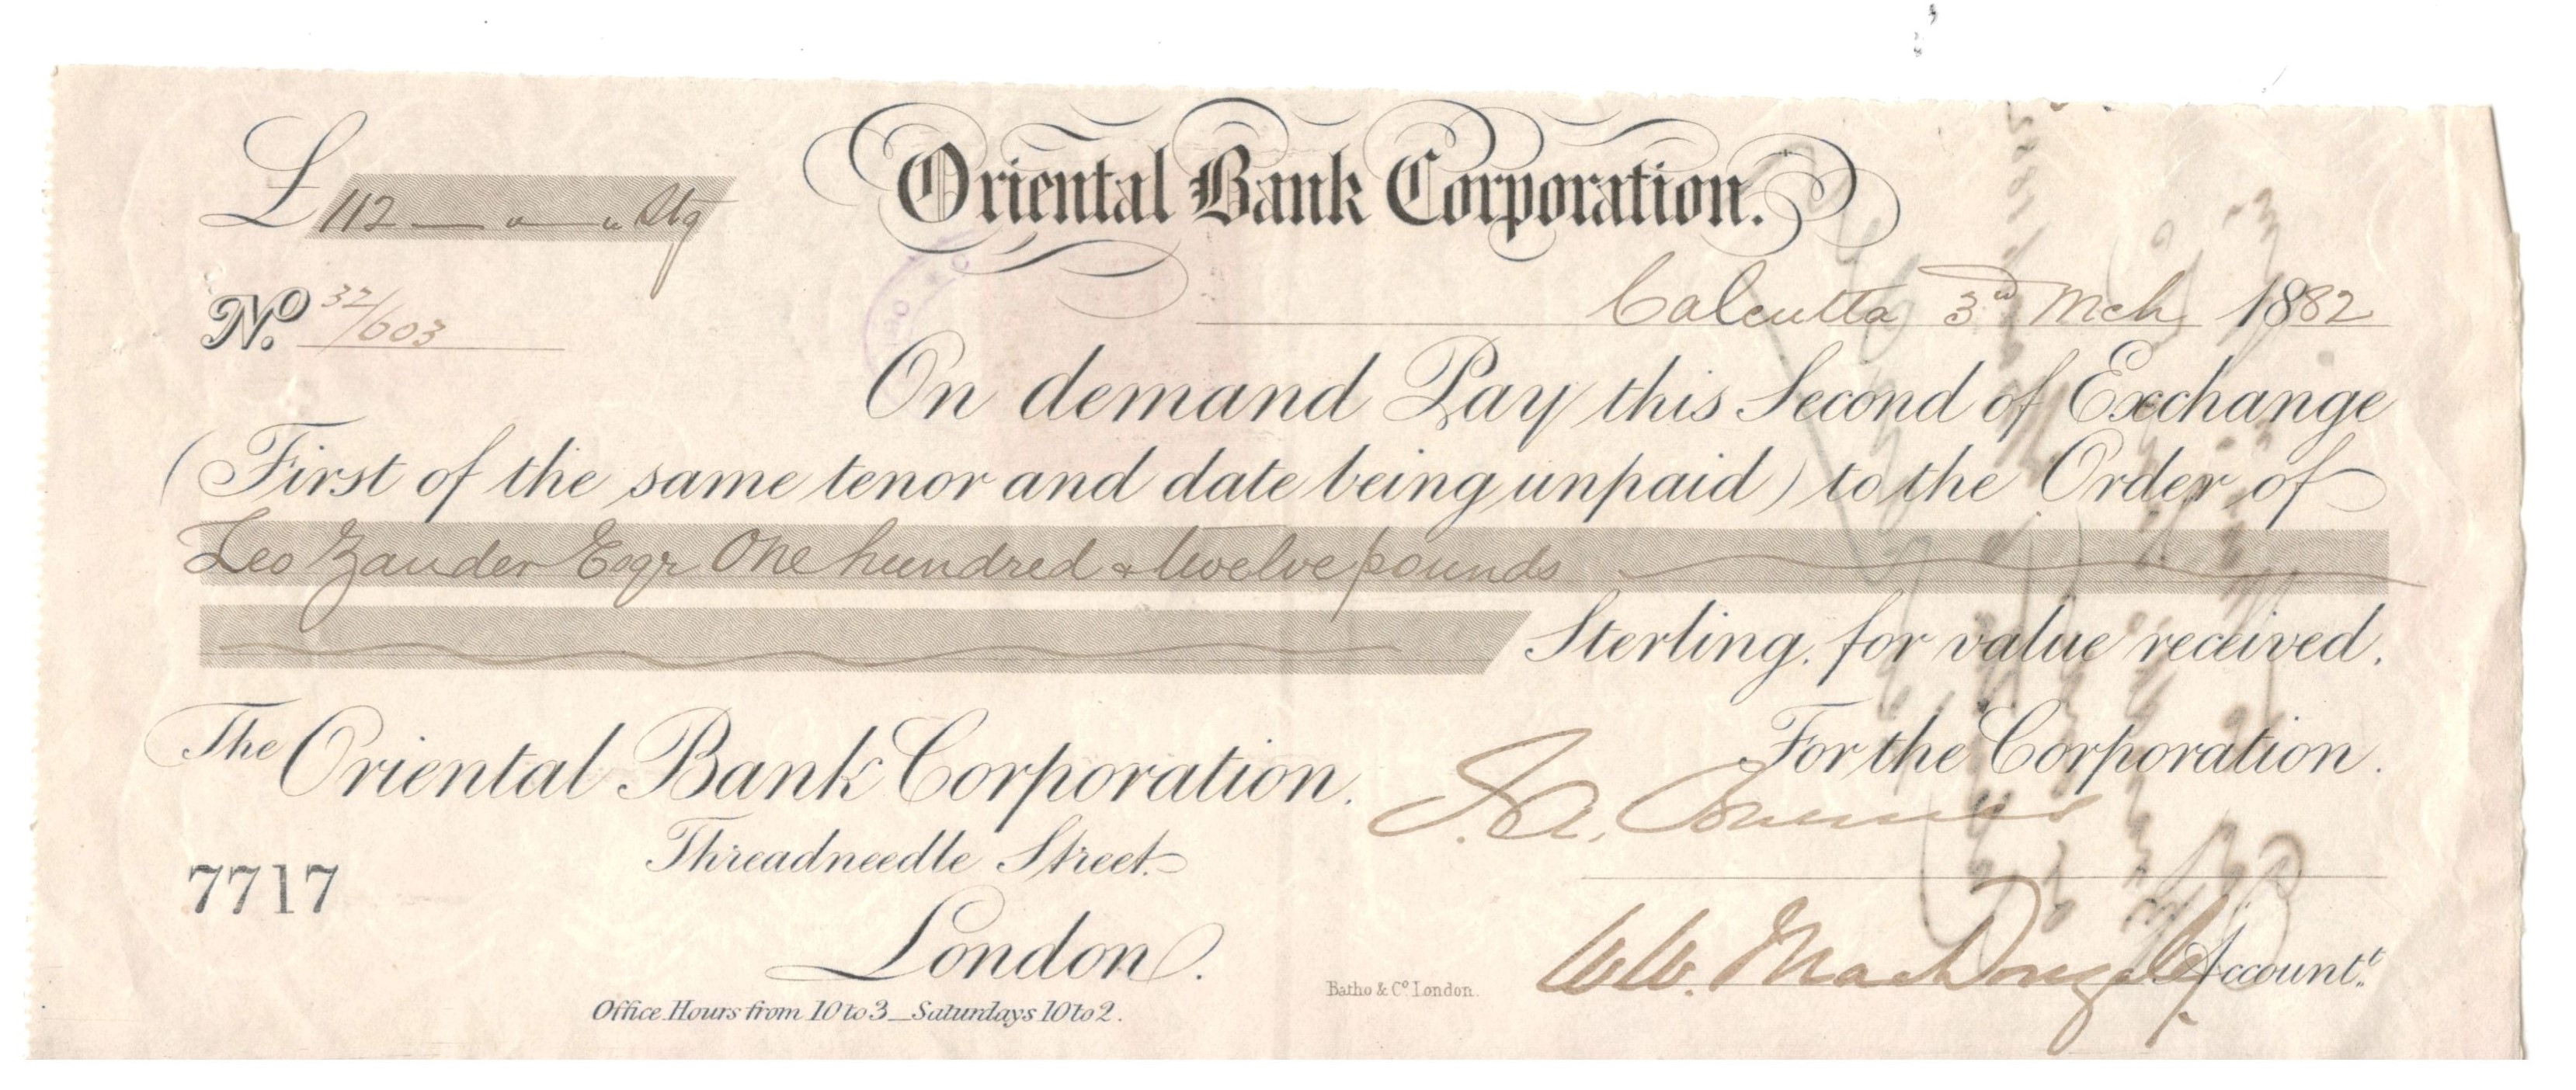 Oriental Bank Corporation.
£ 112 — " — " Stg
No. 32/603
Calcutta 3rd Mch 1882
On demand Pay this Second of Exchange
(First of the same tenor and date being unpaid) to the Order of
Leo Zander Esqr One hundred & twelve pounds
Sterling, for value received.
For the Corporation.
The Oriental Bank Corporation.
Threadneedle Street.
7717
London.
W.W. MacDougall Accountt.
Batho & Co. London.
Office Hours from 10 to 3_Saturdays 10 to 2.